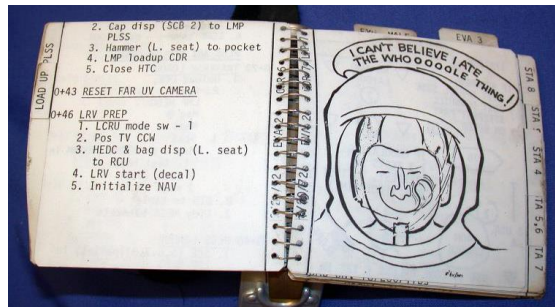 2. Cap disp (SCB 2) to LMP
PLSS
3. Hammer (L. seat) to pocket
4. LMP loadup CDR
5. Close HTC
0+43 RESET FAR UV CAMERA
0+46 LRV PREP
1. LCRU mode sw - 1
2. Pos TV CCW
3. HEDC & bag disp (L. seat)
to RCU
4. LRV start (decal)
5. Initialize NAV
LOAD UP PLSS
EVA 3
I CAN'T BELIEVE I ATE
THE WHOOOOOLE THING!
STA 8
STA
STA 4
TA 5,6
TA 7